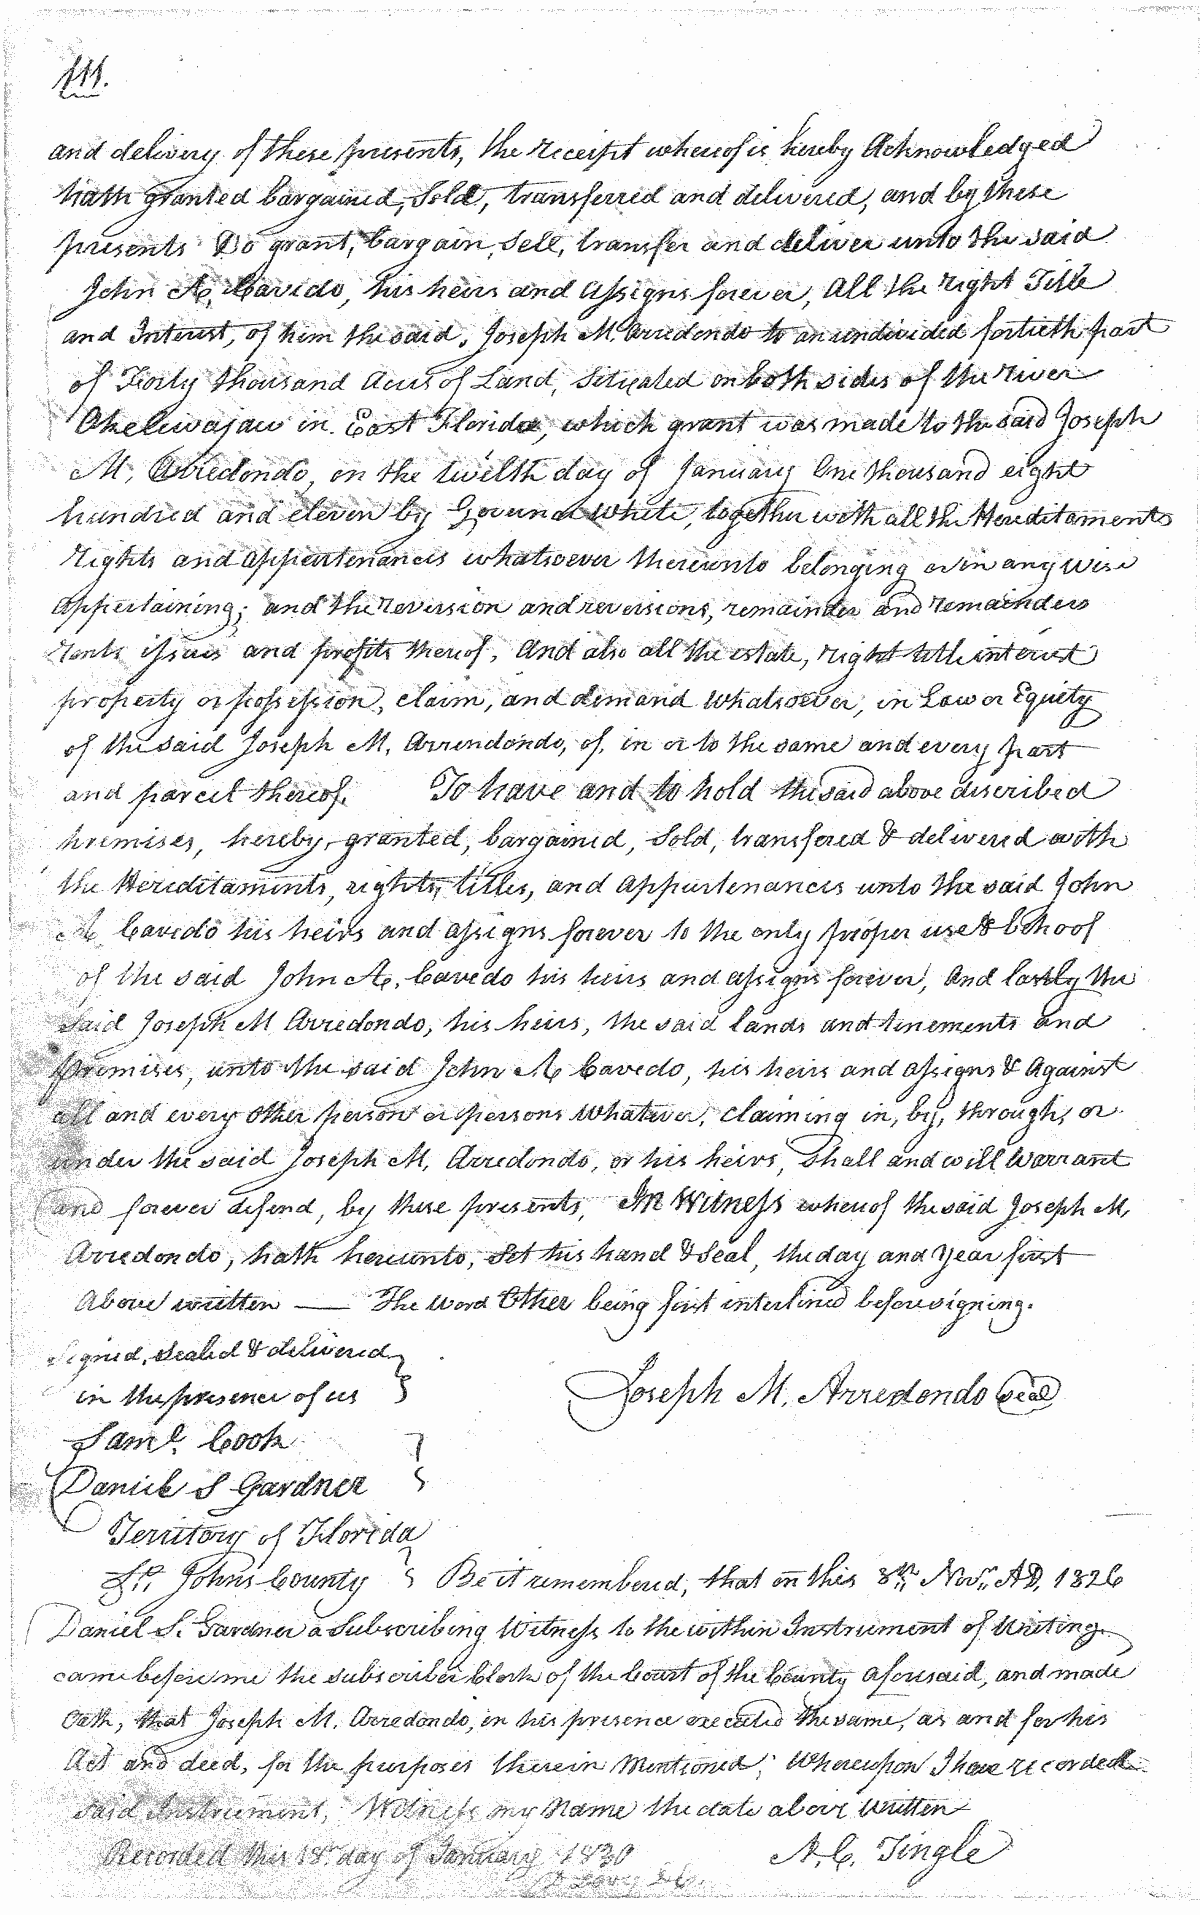 111.
and delivery of these presents, the receipt whereof is hereby Acknowledged
hath granted bargained, Sold, transferred and delivered, and by these
presents Do grant, bargain, Sell, transfer and deliver unto the said
John A. Cavedo, his heirs and assigns forever, All the right Title
and Interest, of him the said, Joseph M. Arredondo to an undivided fortieth part
of Forty thousand Acres of Land, Situated on both sides of the River
in East Florida, which grant was made to the said Joseph
M. Arredondo, on the twelth day of January One thousand eight
hundred and eleven by Governor White, together with all the Hereditaments
Rights and appurtenances whatsoever thereunto belonging or in any wise
appertaining; and the reversion and reversions, remainder and remainders
rents issues and profits thereof, And also all the estate, right title interest
property or possession, claim, and demand whatsoever, in Law or Equity
of the said Joseph M. Arrendondo, of, in or to the same and every part
and parcel thereof. To have and to hold the said above discribed
premises, hereby, granted, bargained, Sold, transfered & delivered with
the Hereditaments, rights, titles, and appurtenances unto the said John
A. Cavedo his heirs and assigns forever to the only proper use & behoof
of the said John A. Cavedo his heirs and assigns forever, And lastly the
said Joseph M Arredondo, his heirs, the said lands and tinements and
premises, unto the said John A Cavedo, his heirs and assigns & Against
all and every other person or persons whatever, claiming in, by, through, or
under the said Joseph M. Arredondo, or his heirs, Shall and will Warrant
and forever defend, by these presents, In Witness whereof the said Joseph M.
Arredondo, hath hereunto, Set his hand & Seal, the day and year first
Above written — The Word Other being first interlined before signing.
Signed, Sealed & delivered
in the presence of us
Joseph M. Arredondo seal
Saml. Cook
Daniel S Gardner
Territory of Florida
St. Johns County Be it remembered, that on this 8th. Novr. AD, 1826
Daniel S. Gardner a Subscribing Witness to the within Instrument of Writing
came before me the subscriber Clerk of the Court of the County aforesaid, and made
Oath, that Joseph M. Arredondo, in his presence executed the same, as and for his
Act and deed, for the purposes therein Mentioned; Whereupon I have recorded
said Instrument, Witness my Name the date above written
Recorded this 18th day of January 1830
A. C. Tingle